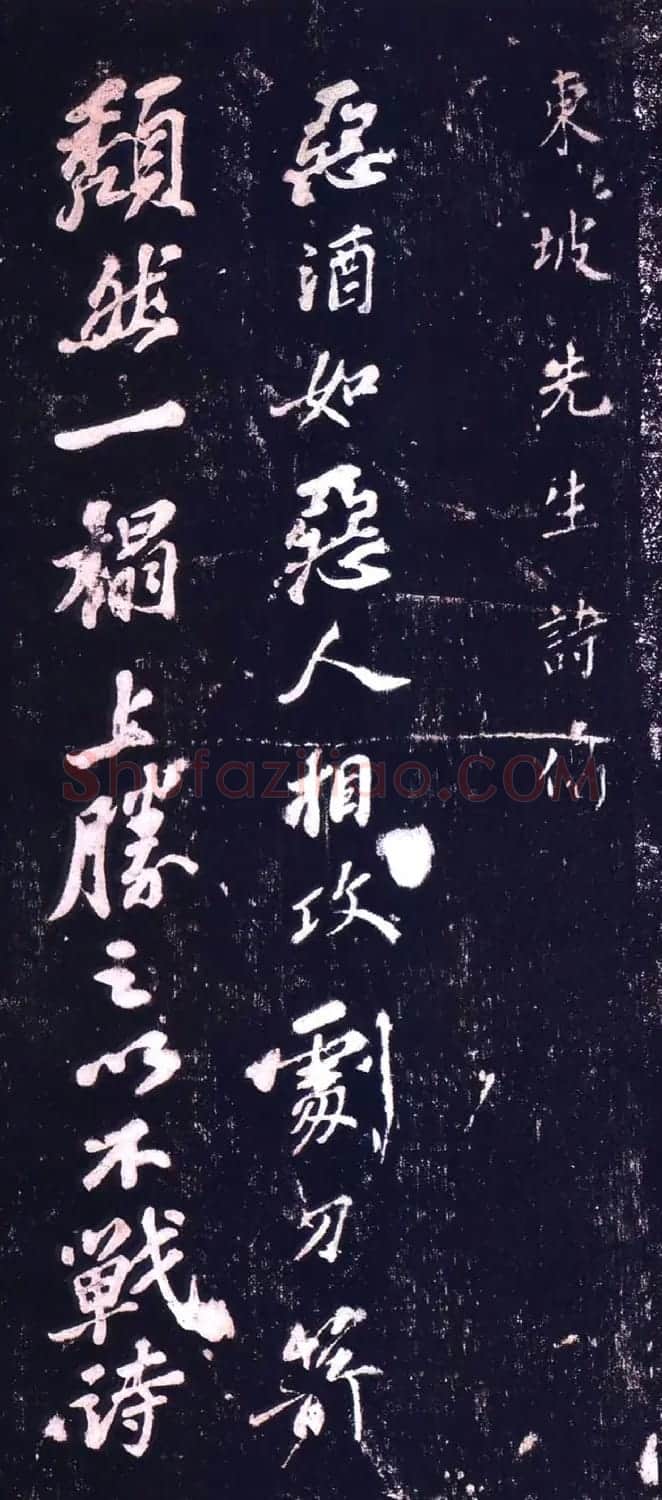 東坡先生詩
惡酒如惡人相攻劇刀箭
頹然一榻上勝之以不戰詩
Shufaziliao.COM